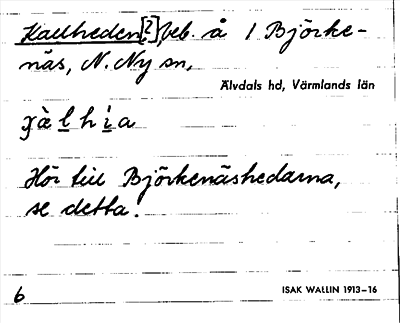 Kallheden [?], beb. å 1 Björke-
näs, N. Ny sn,
Älvdals hd, Värmlands län
Hör till Björkenäshedarna,
se detta.
6
ISAK WALLIN 1913–16